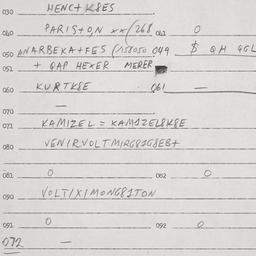 030 HENCT K8ES
040 PARIST0,N xx/268 041 0
050 ANARBEXA+FES (158050 049 $ QH QGL
051 + QAP HEXER MERER
060 KURTK8E 061 —
070 —
071 KAMIZEL = KAM1ZEL8K8E
080 VENIRVOLTMIRG81G8EB+
081 0 082 0
090 VOLT/X/MONG81TON
091 0 092 0
072 —